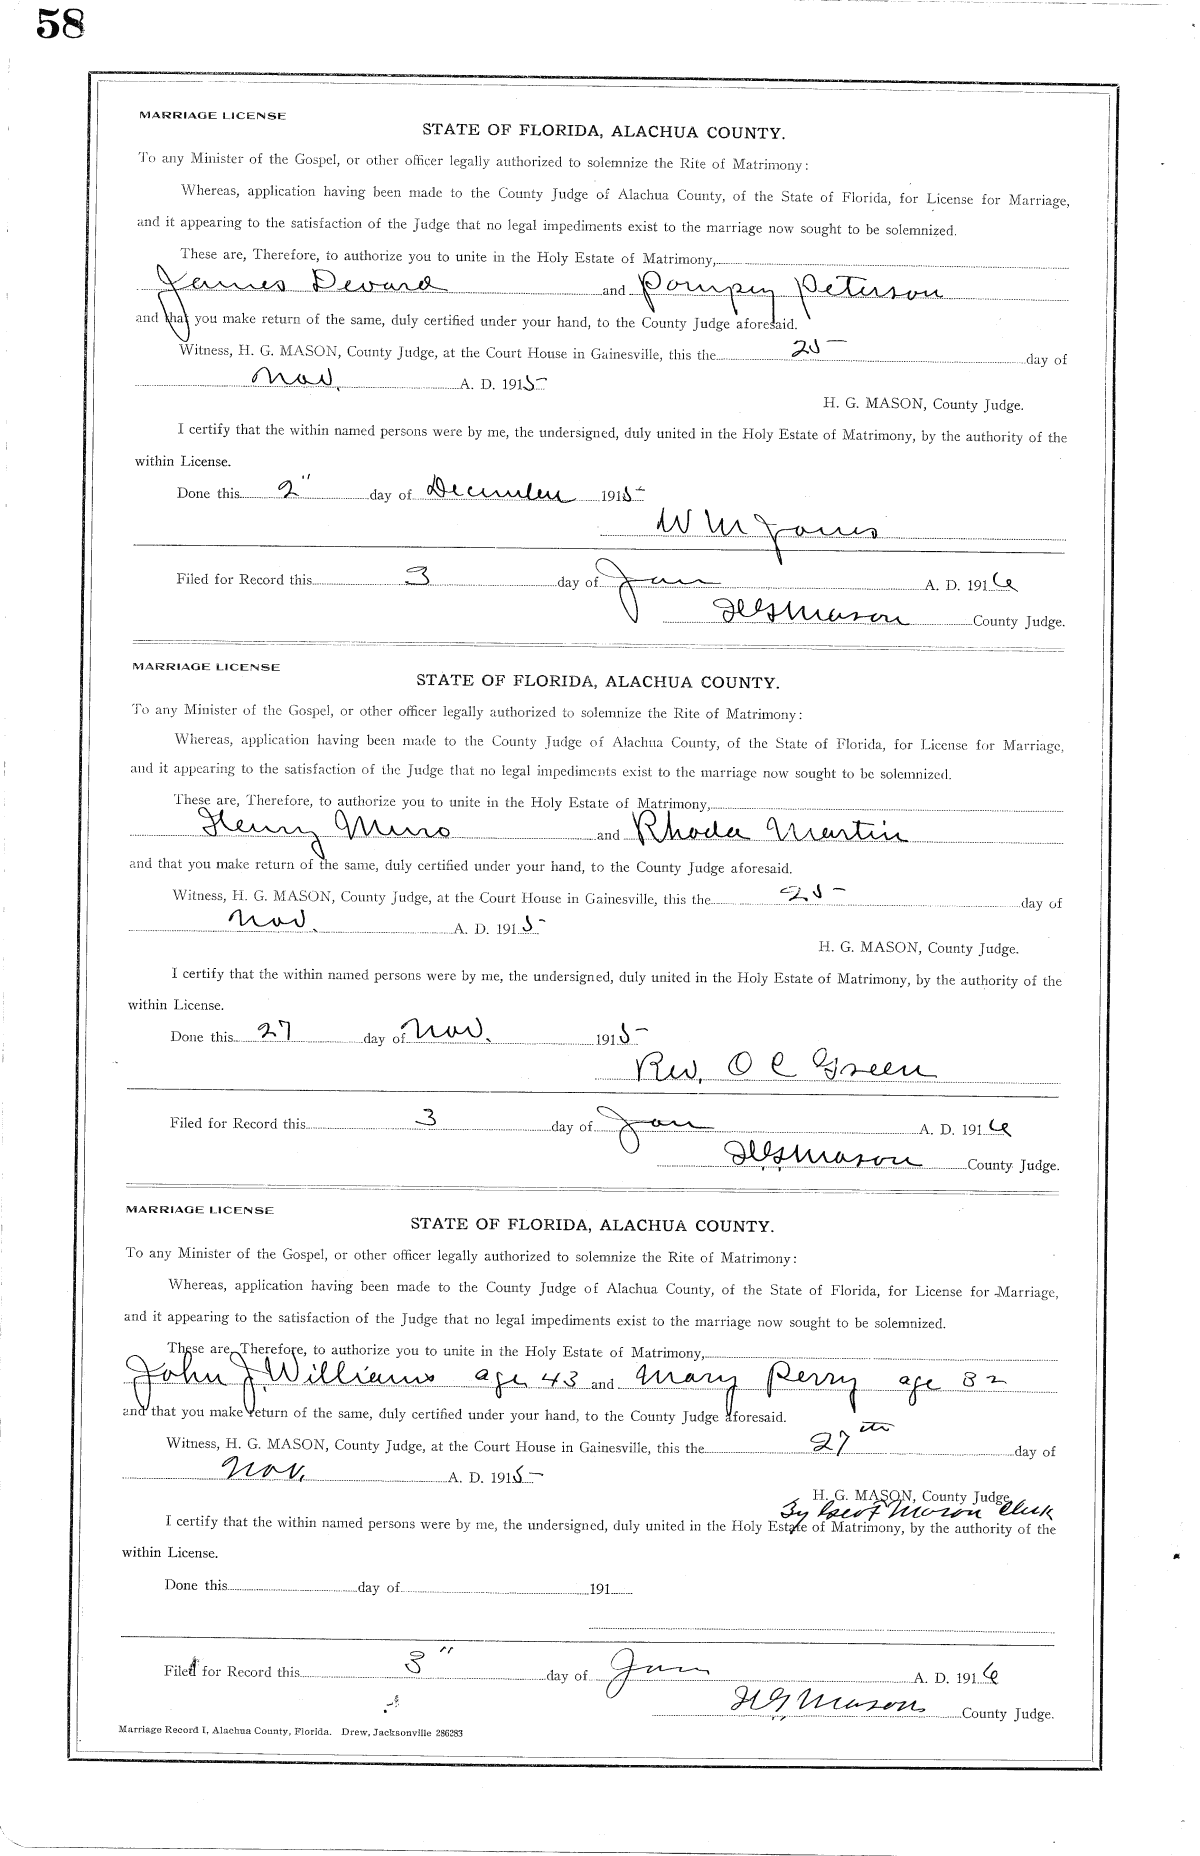 58
MARRIAGE LICENSE
STATE OF FLORIDA, ALACHUA COUNTY.
To any Minister of the Gospel, or other officer legally authorized to solemnize the Rite of Matrimony:
Whereas, application having been made to the County Judge of Alachua County, of the State of Florida, for License for Marriage,
and it appearing to the satisfaction of the Judge that no legal impediments exist to the marriage now sought to be solemnized.
These are, Therefore, to authorize you to unite in the Holy Estate of Matrimony,
James Devard and Pompey Peterson
and that you make return of the same, duly certified under your hand, to the County Judge aforesaid.
Witness, H. G. MASON, County Judge, at the Court House in Gainesville, this the 25 day of
Nov. A. D. 1915
H. G. MASON, County Judge.
I certify that the within named persons were by me, the undersigned, duly united in the Holy Estate of Matrimony, by the authority of the
within License.
Done this 2" day of December 1915
W M Jones
Filed for Record this 3 day of Jan A. D. 1916
H G Mason County Judge.
MARRIAGE LICENSE
STATE OF FLORIDA, ALACHUA COUNTY.
To any Minister of the Gospel, or other officer legally authorized to solemnize the Rite of Matrimony:
Whereas, application having been made to the County Judge of Alachua County, of the State of Florida, for License for Marriage,
and it appearing to the satisfaction of the Judge that no legal impediments exist to the marriage now sought to be solemnized.
These are, Therefore, to authorize you to unite in the Holy Estate of Matrimony,
Henry and Rhoda Martin
and that you make return of the same, duly certified under your hand, to the County Judge aforesaid.
Witness, H. G. MASON, County Judge, at the Court House in Gainesville, this the 25 day of
Nov. A. D. 1915
H. G. MASON, County Judge.
I certify that the within named persons were by me, the undersigned, duly united in the Holy Estate of Matrimony, by the authority of the
within License.
Done this 27 day of Nov. 1915
Rev. O C Green
Filed for Record this 3 day of Jan A. D. 1916
H G Mason County Judge.
MARRIAGE LICENSE
STATE OF FLORIDA, ALACHUA COUNTY.
To any Minister of the Gospel, or other officer legally authorized to solemnize the Rite of Matrimony:
Whereas, application having been made to the County Judge of Alachua County, of the State of Florida, for License for Marriage,
and it appearing to the satisfaction of the Judge that no legal impediments exist to the marriage now sought to be solemnized.
These are, Therefore, to authorize you to unite in the Holy Estate of Matrimony,
John J. Williams age 43 and Mary Perry age 32
and that you make return of the same, duly certified under your hand, to the County Judge aforesaid.
Witness, H. G. MASON, County Judge, at the Court House in Gainesville, this the 27th day of
Nov. A. D. 1915
H. G. MASON, County Judge
By Mason Clerk
I certify that the within named persons were by me, the undersigned, duly united in the Holy Estate of Matrimony, by the authority of the
within License.
Done this day of 191
Filed for Record this 3" day of Jan A. D. 1916
H G Mason County Judge.
Marriage Record I, Alachua County, Florida. Drew, Jacksonville 286283